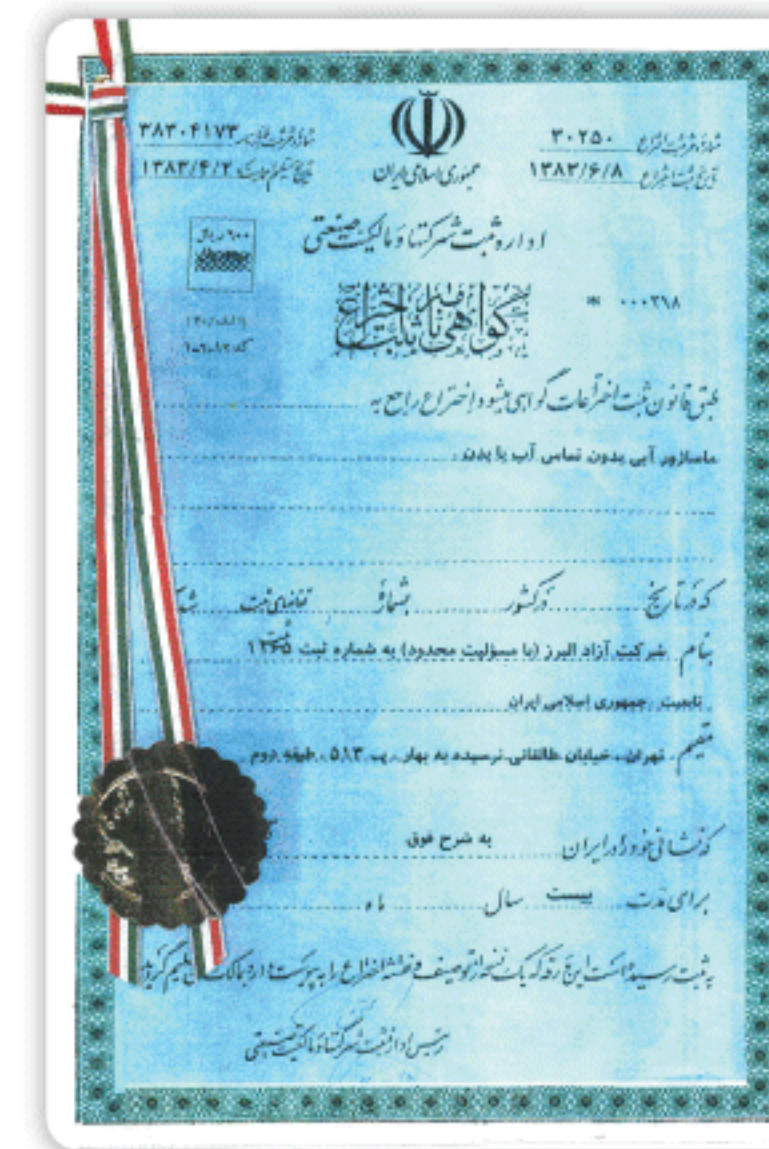 شماره ثبت اختراع ۳۰۲۵۰
تاریخ ثبت اختراع ۱۳۸۳/۶/۸
جمهوری اسلامی ایران
۳۸۳۰۴۱۷۳
۱۳۸۳/۴/۲
اداره ثبت شرکتها و مالکیت صنعتی
۶۰۰ ریال
گواهی نامه ثبت اختراع
* ۰۰۰۲۶۸
طبق قانون ثبت اختراعات گواهی میشود اختراع راجع به
ماساژور آبی بدون تماس آب با بدن
که در تاریخ در کشور بشماره تقاضای ثبت
بنام شرکت آزاد البرز (با مسؤلیت محدود) به شماره ثبت
تابعیت جمهوری اسلامی ایران
مقیم تهران، خیابان طالقانی نرسیده به بهار، پ ۵۱۳، طبقه دوم
که نشانی خود را در ایران به شرح فوق
برای مدت بیست سال ماه
به ثبت رسیده است این ورقه که یک نسخه از توصیف و نقشه اختراع را به پیوست دارد بمالک آن تسلیم گردید
رئیس اداره ثبت شرکتها و مالکیت صنعتی